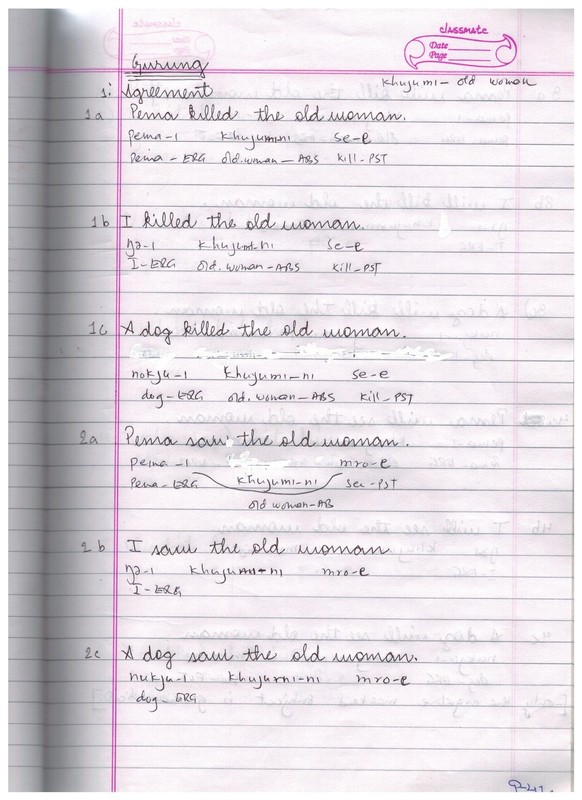 classmate
Date
Page
Gurung
Khujumi - old woman
1: Agreement
1a Pema killed the old woman.
pema-1 khujumi-ni se-e
Pema - ERG old.woman - ABS kill-PST
1b I killed the old woman.
ŋa-1 khujumi-ni se-e
I-ERG old.woman-ABS kill-PST
1c A dog killed the old woman.
nokju-1 khujumi-ni se-e
dog-ERG old.woman-ABS kill-PST
2a Pema saw the old woman.
pema-1 mro-e
Pema-ERG khujumi-ni see-PST
old woman-AB
2b I saw the old woman
ŋa-1 khujumi-ni mro-e
I-ERG
2c A dog saw the old woman.
nukju-1 khujumi-ni mro-e
dog-ERG